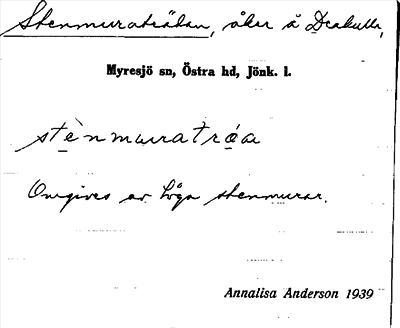 Stenmuraträdan, åker å Drakulla,
Myresjö sn, Östra hd, Jönk. l.
stènmurratróa
Omgives av höga stenmurar.
Annalisa Anderson 1939